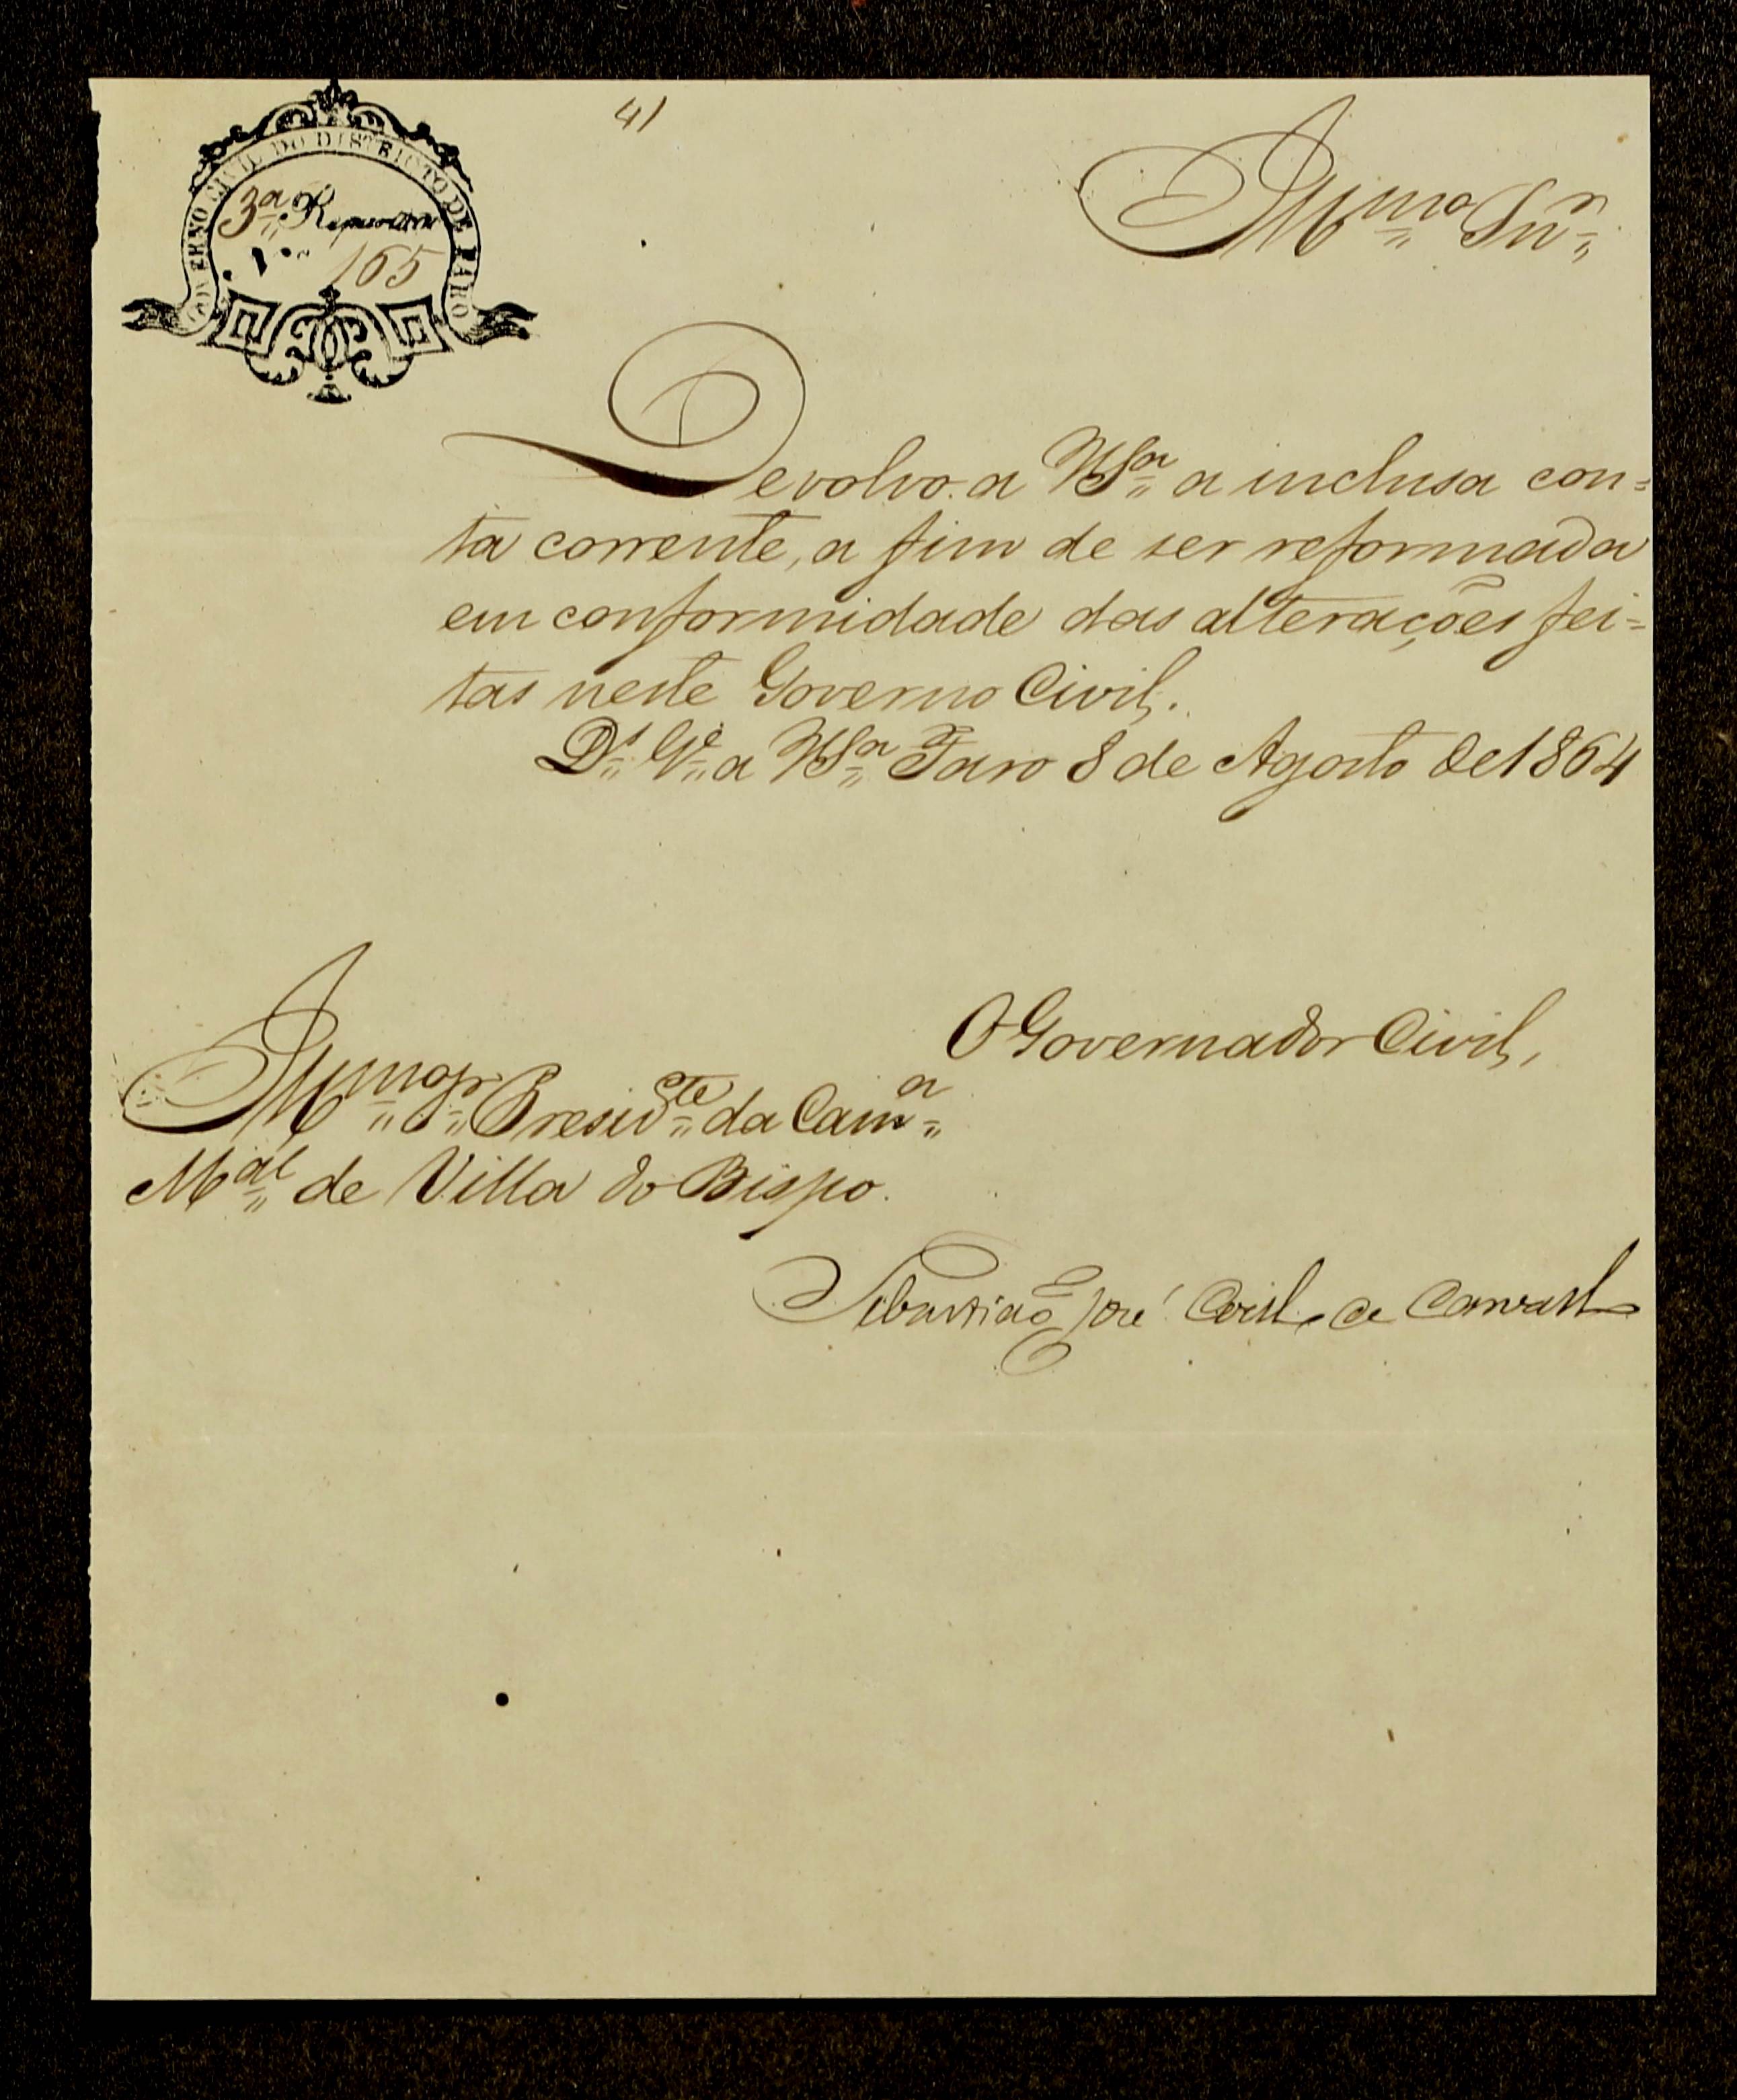 41
GOVERNO CIVIL DO DISTRICTO DE FARO
3ª Repartição
N.º 165
Illmo Snr
Devolvo a VSª a inclusa con=
ta corrente, a fim de ser reformada
em conformidade das alterações fei=
tas neste Governo Civil.
Ds Ge a VSª Faro 8 de Agosto de 1864
O Governador Civil,
Illmo Sr Presidte da Camª
Mal de Villa do Bispo.
Sebastião José Coelho de Carvalho